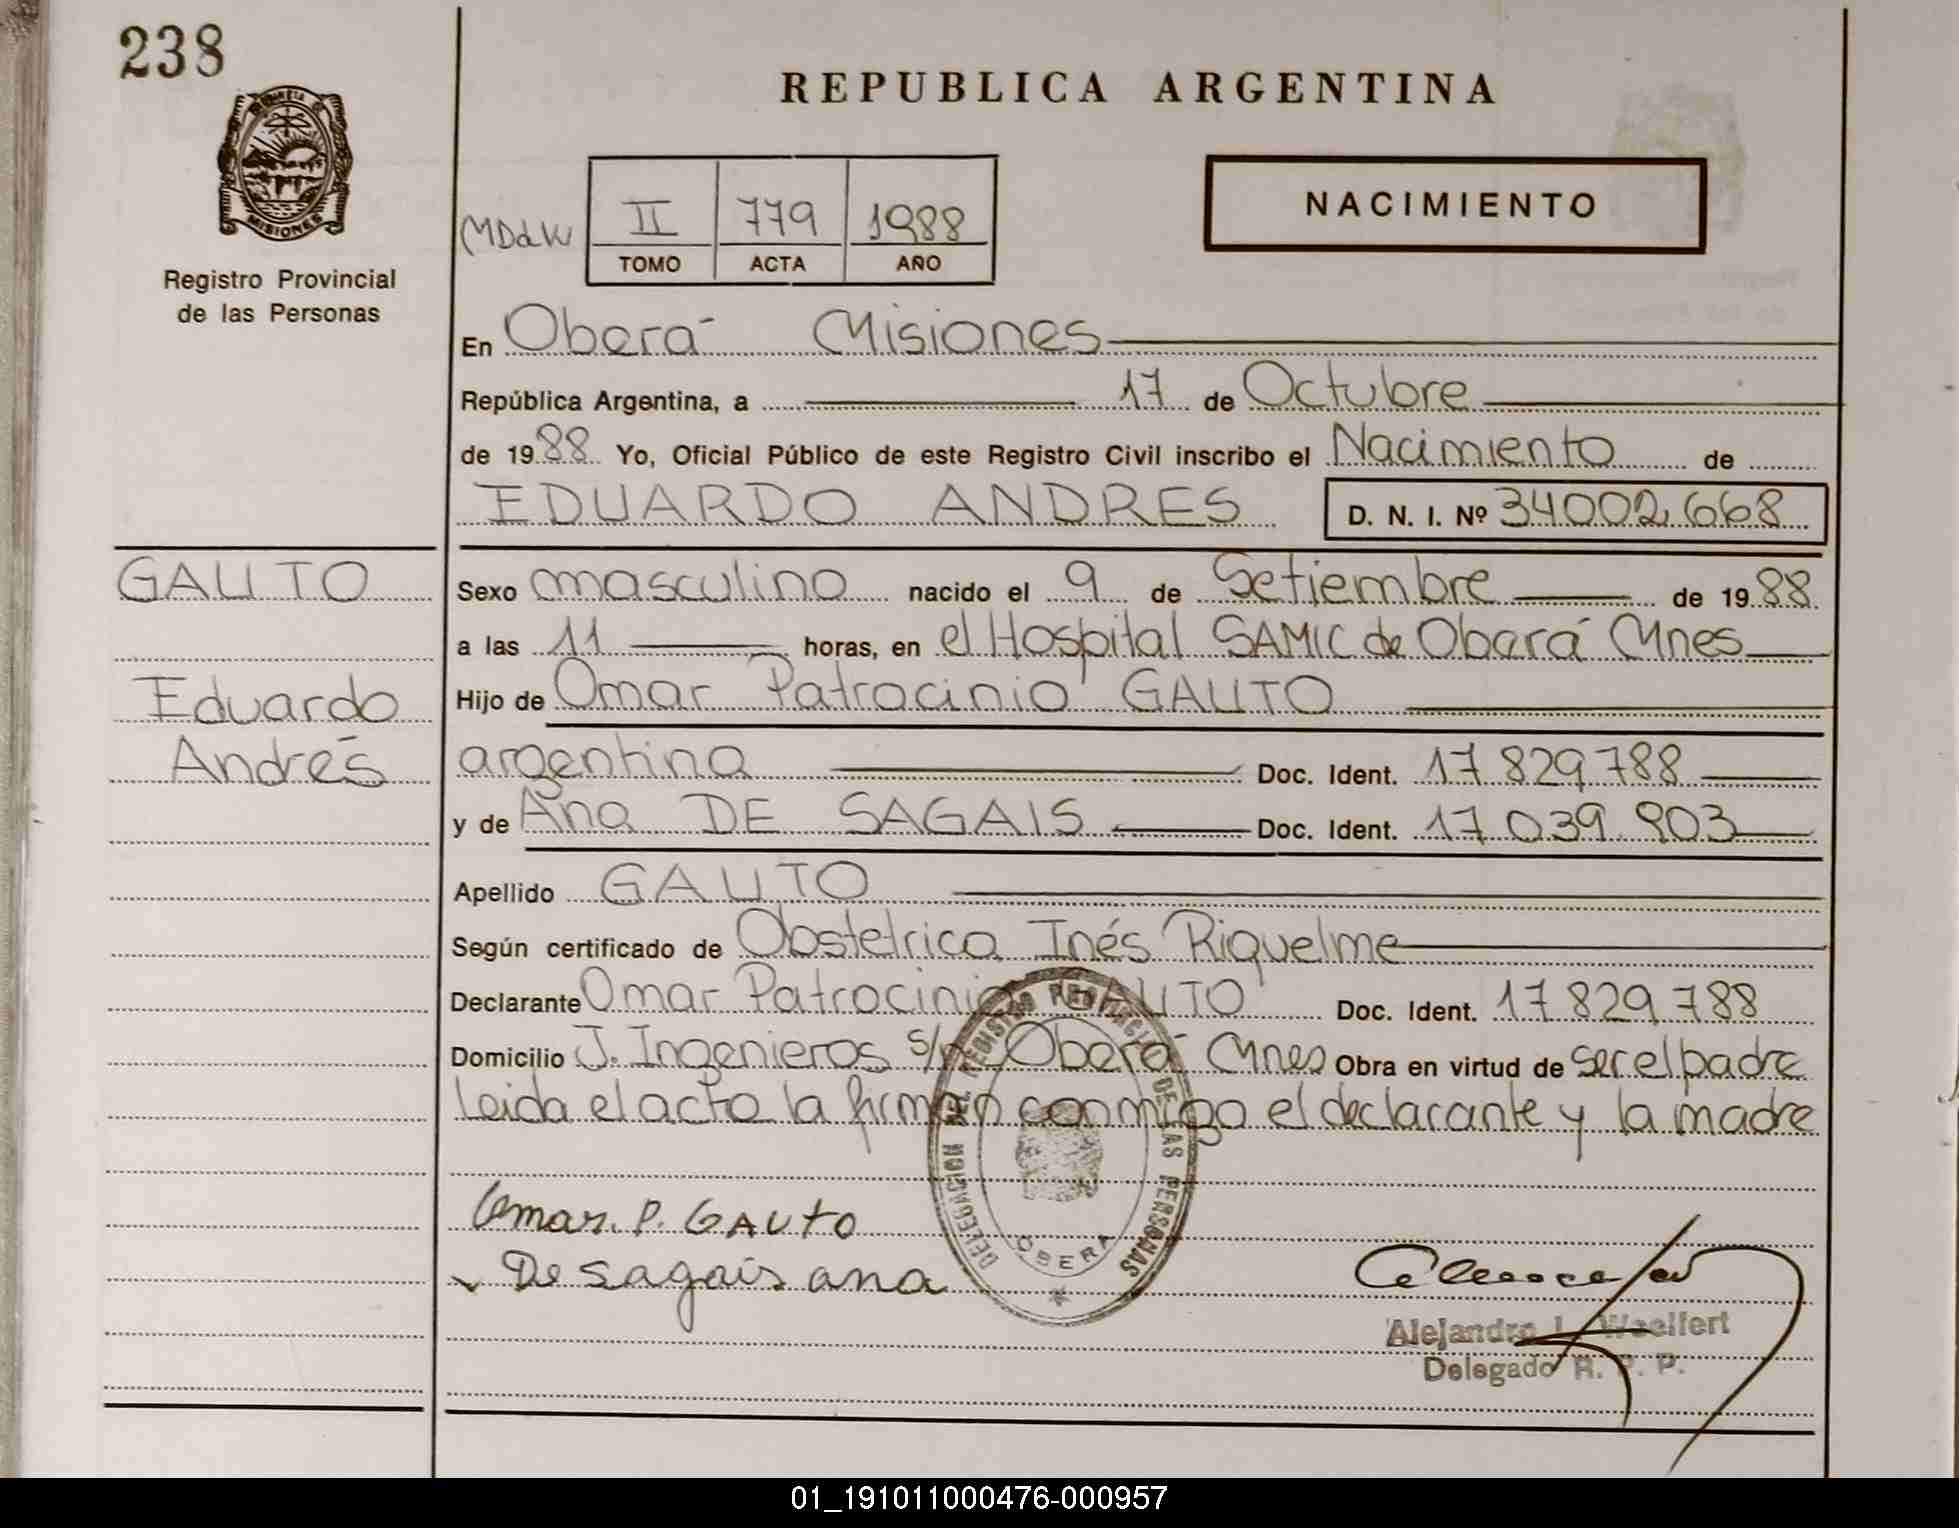 238
REPUBLICA ARGENTINA
MISIONES
Registro Provincial
de las Personas
MDdW
II 779 1988
TOMO ACTA AÑO
NACIMIENTO
En Oberá Misiones
República Argentina, a 17 de Octubre
de 1988 Yo, Oficial Público de este Registro Civil inscribo el Nacimiento de
EDUARDO ANDRES D. N. I. Nº 34002668
GAUTO
Eduardo
Andrés
Sexo masculino nacido el 9 de Setiembre de 1988
a las 11 horas, en el Hospital SAMIC de Obará Mnes
Hijo de Omar Patrocinio GAUTO
argentina Doc. Ident. 17829788
y de Ana DE SAGAIS Doc. Ident. 17039903
Apellido GAUTO
Según certificado de Obstetrica Inés Riquelme
Declarante Omar Patrocinio GAUTO Doc. Ident. 17829788
Domicilio J. Ingenieros s/n Oberá Mnes Obra en virtud de ser el padre
Leida el acta la firman conmigo el declarante y la madre
DELEGACION DEL REGISTRO PROVINCIAL DE LAS PERSONAS
OBERA
Omar. P. GAUTO
De sagais ana
Alejandro L. Woelfert
Delegado R. P. P.
01_191011000476-000957